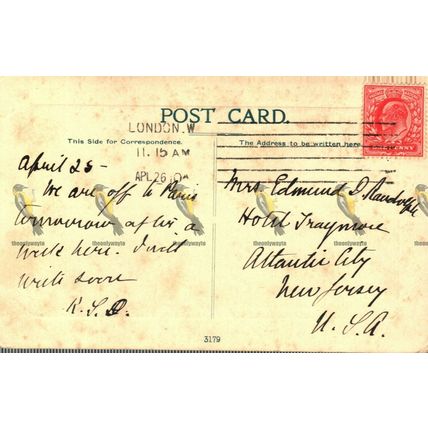 POST CARD.
LONDON.W
11.15 AM
APL 26 10
This Side for Correspondence.
The Address to be written here.
PENNY
April 25 -
We are off to Paris
tomorrow after a
week here. Must
write soon
K.S.D.
Mrs Edmund D. Randolph
Hotel Traymore
Atlantic City
New Jersey
U.S.A.
theonlywayto theonlywayto theonlywayto theonlywayto theonlywayto
3179